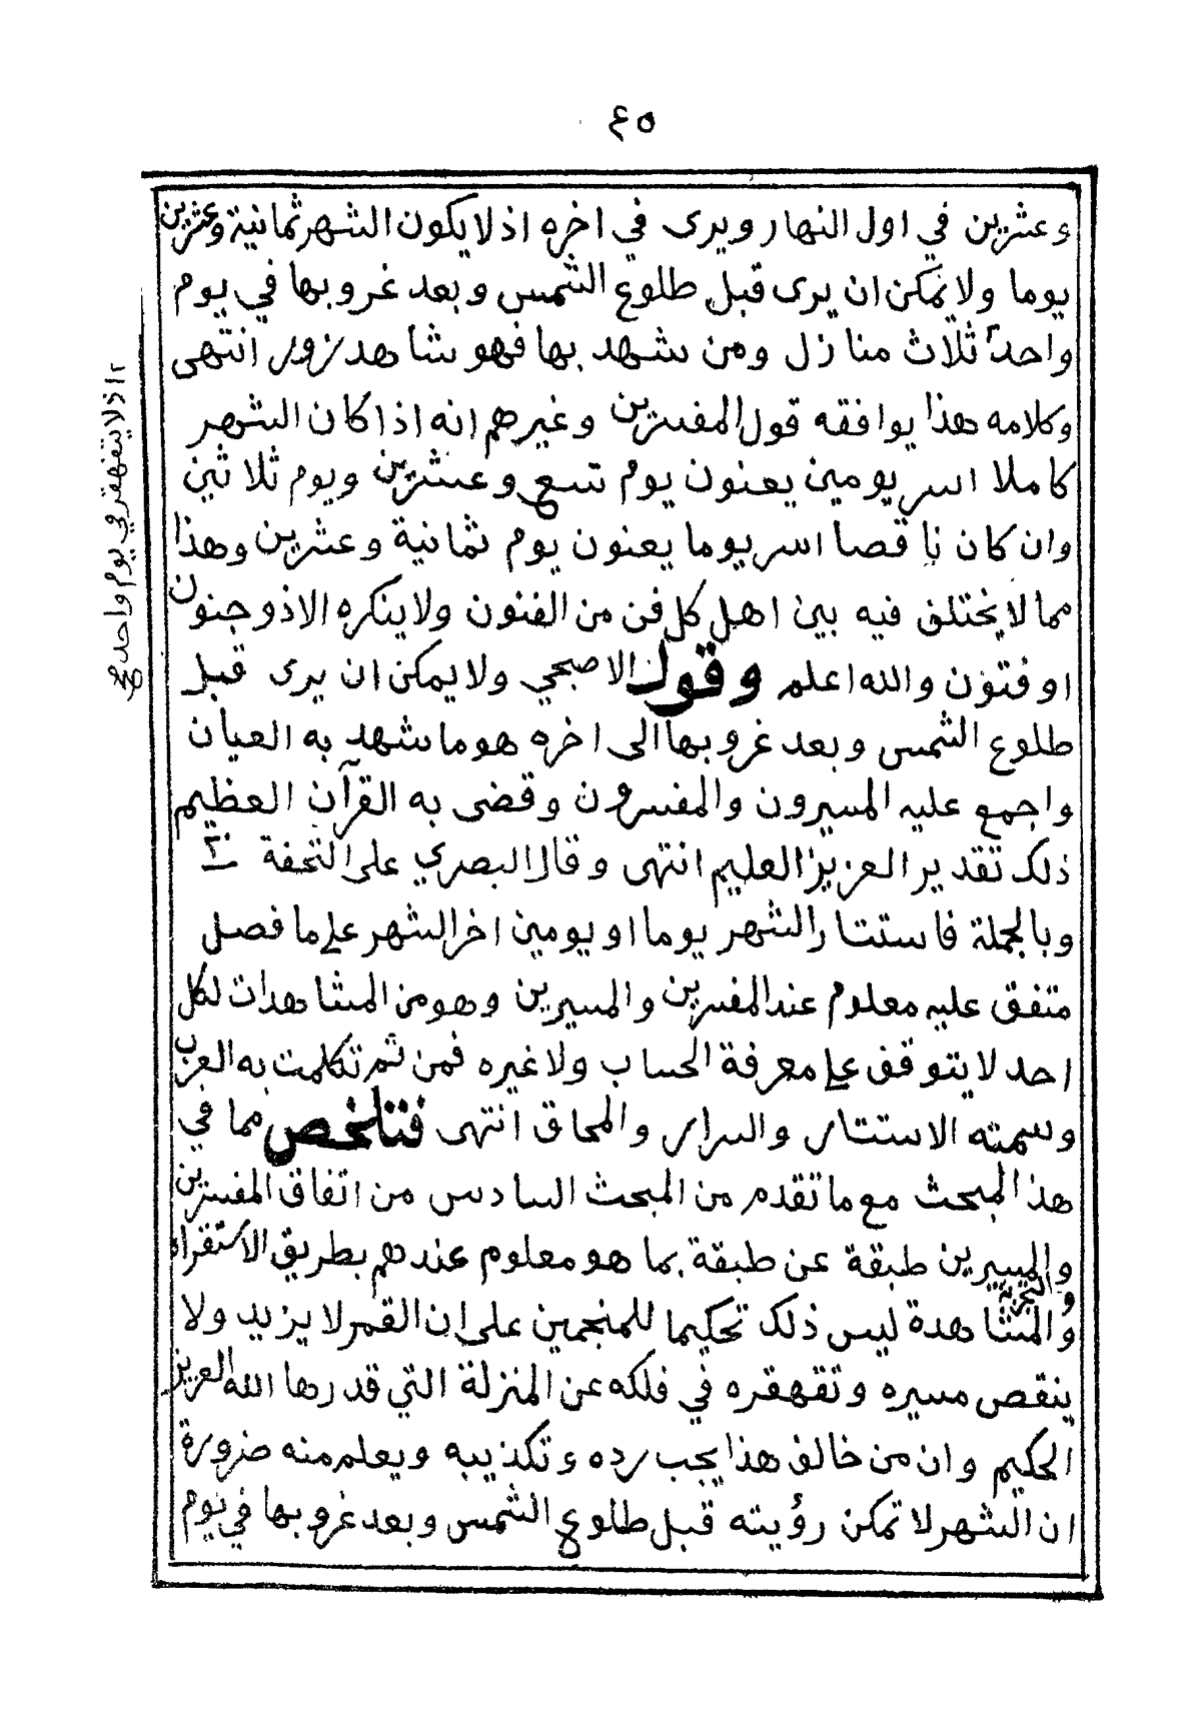 ٤٥
وعشرين في اول النهار ويرى في اخره اذ لا يكون الشهر ثمانية وعشرين
يوما ولا يمكن ان يرى قبل طلوع الشمس وبعد غروبها في يوم
واحد ثلاث منازل ومن شهد بها فهو شاهد زور انتهى
وكلامه هذا يوافقه قول المفسرين وغيرهم انه اذا كان الشهر
كاملا استسر يومين يعنون يوم تسع وعشرين ويوم ثلاثين
وان كان ناقصا استسر يوما يعنون يوم ثمانية وعشرين وهذا
مما لا يختلف فيه بين اهل كل فن من الفنون ولا ينكره الا ذو جنون
او فتون والله اعلم وقول الاصبحي ولا يمكن ان يرى قبل
طلوع الشمس وبعد غروبها الى اخره هو ما شهد به العيان
واجمع عليه المسيرون والمفسرون وقضى به القرآن العظيم
ذلك تقدير العزيز العليم انتهى وقال البصري على التحفة
وبالجملة فاستتار الشهر يوما او يومين اخر الشهر على ما فصل
متفق عليه معلوم عند المفسرين والمسيرين وهو من المشاهدات لكل
احد لا يتوقف على معرفة الحساب ولا غيره فمن ثم تكلمت به العرب
وسمته الاستتار والسرار والمحاق انتهى فتلخص مما في
هذا المبحث مع ما تقدم من المبحث السادس من اتفاق المفسرين
والمسيرين طبقة عن طبقة بما هو معلوم عندهم بطريق الاستقراء
والتجربة
والمشاهدة ليس ذلك تحكيما للمنجمين على ان القمر لا يزيد ولا
ينقص مسيره وتقهقره في فلكه عن المنزلة التي قدرها الله العزيز
الحكيم وان من خالف هذا يجب رده وتكذيبه ويعلم منه ضرورة
ان الشهر لا تمكن رؤيته قبل طلوع الشمس وبعد غروبها في يوم
اذ لا يتقهقر في يوم واحد